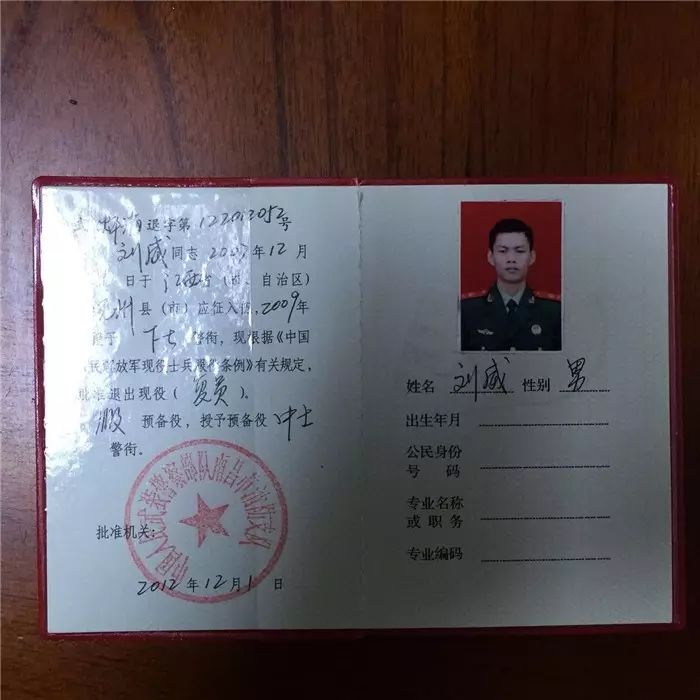 退字第122012052号
刘威同志2007年12月
日于江西省(市、自治区)
县(市)应征入伍,2009年
下士警衔,现根据《中国
民解放军现役士兵服役条例》有关规定,
批准退出现役(复员)。
服预备役,授予预备役中士
警衔。
批准机关:
2012年12月1日
姓名 刘威 性别 男
出生年月
公民身份
号码
专业名称
或职务
专业编码